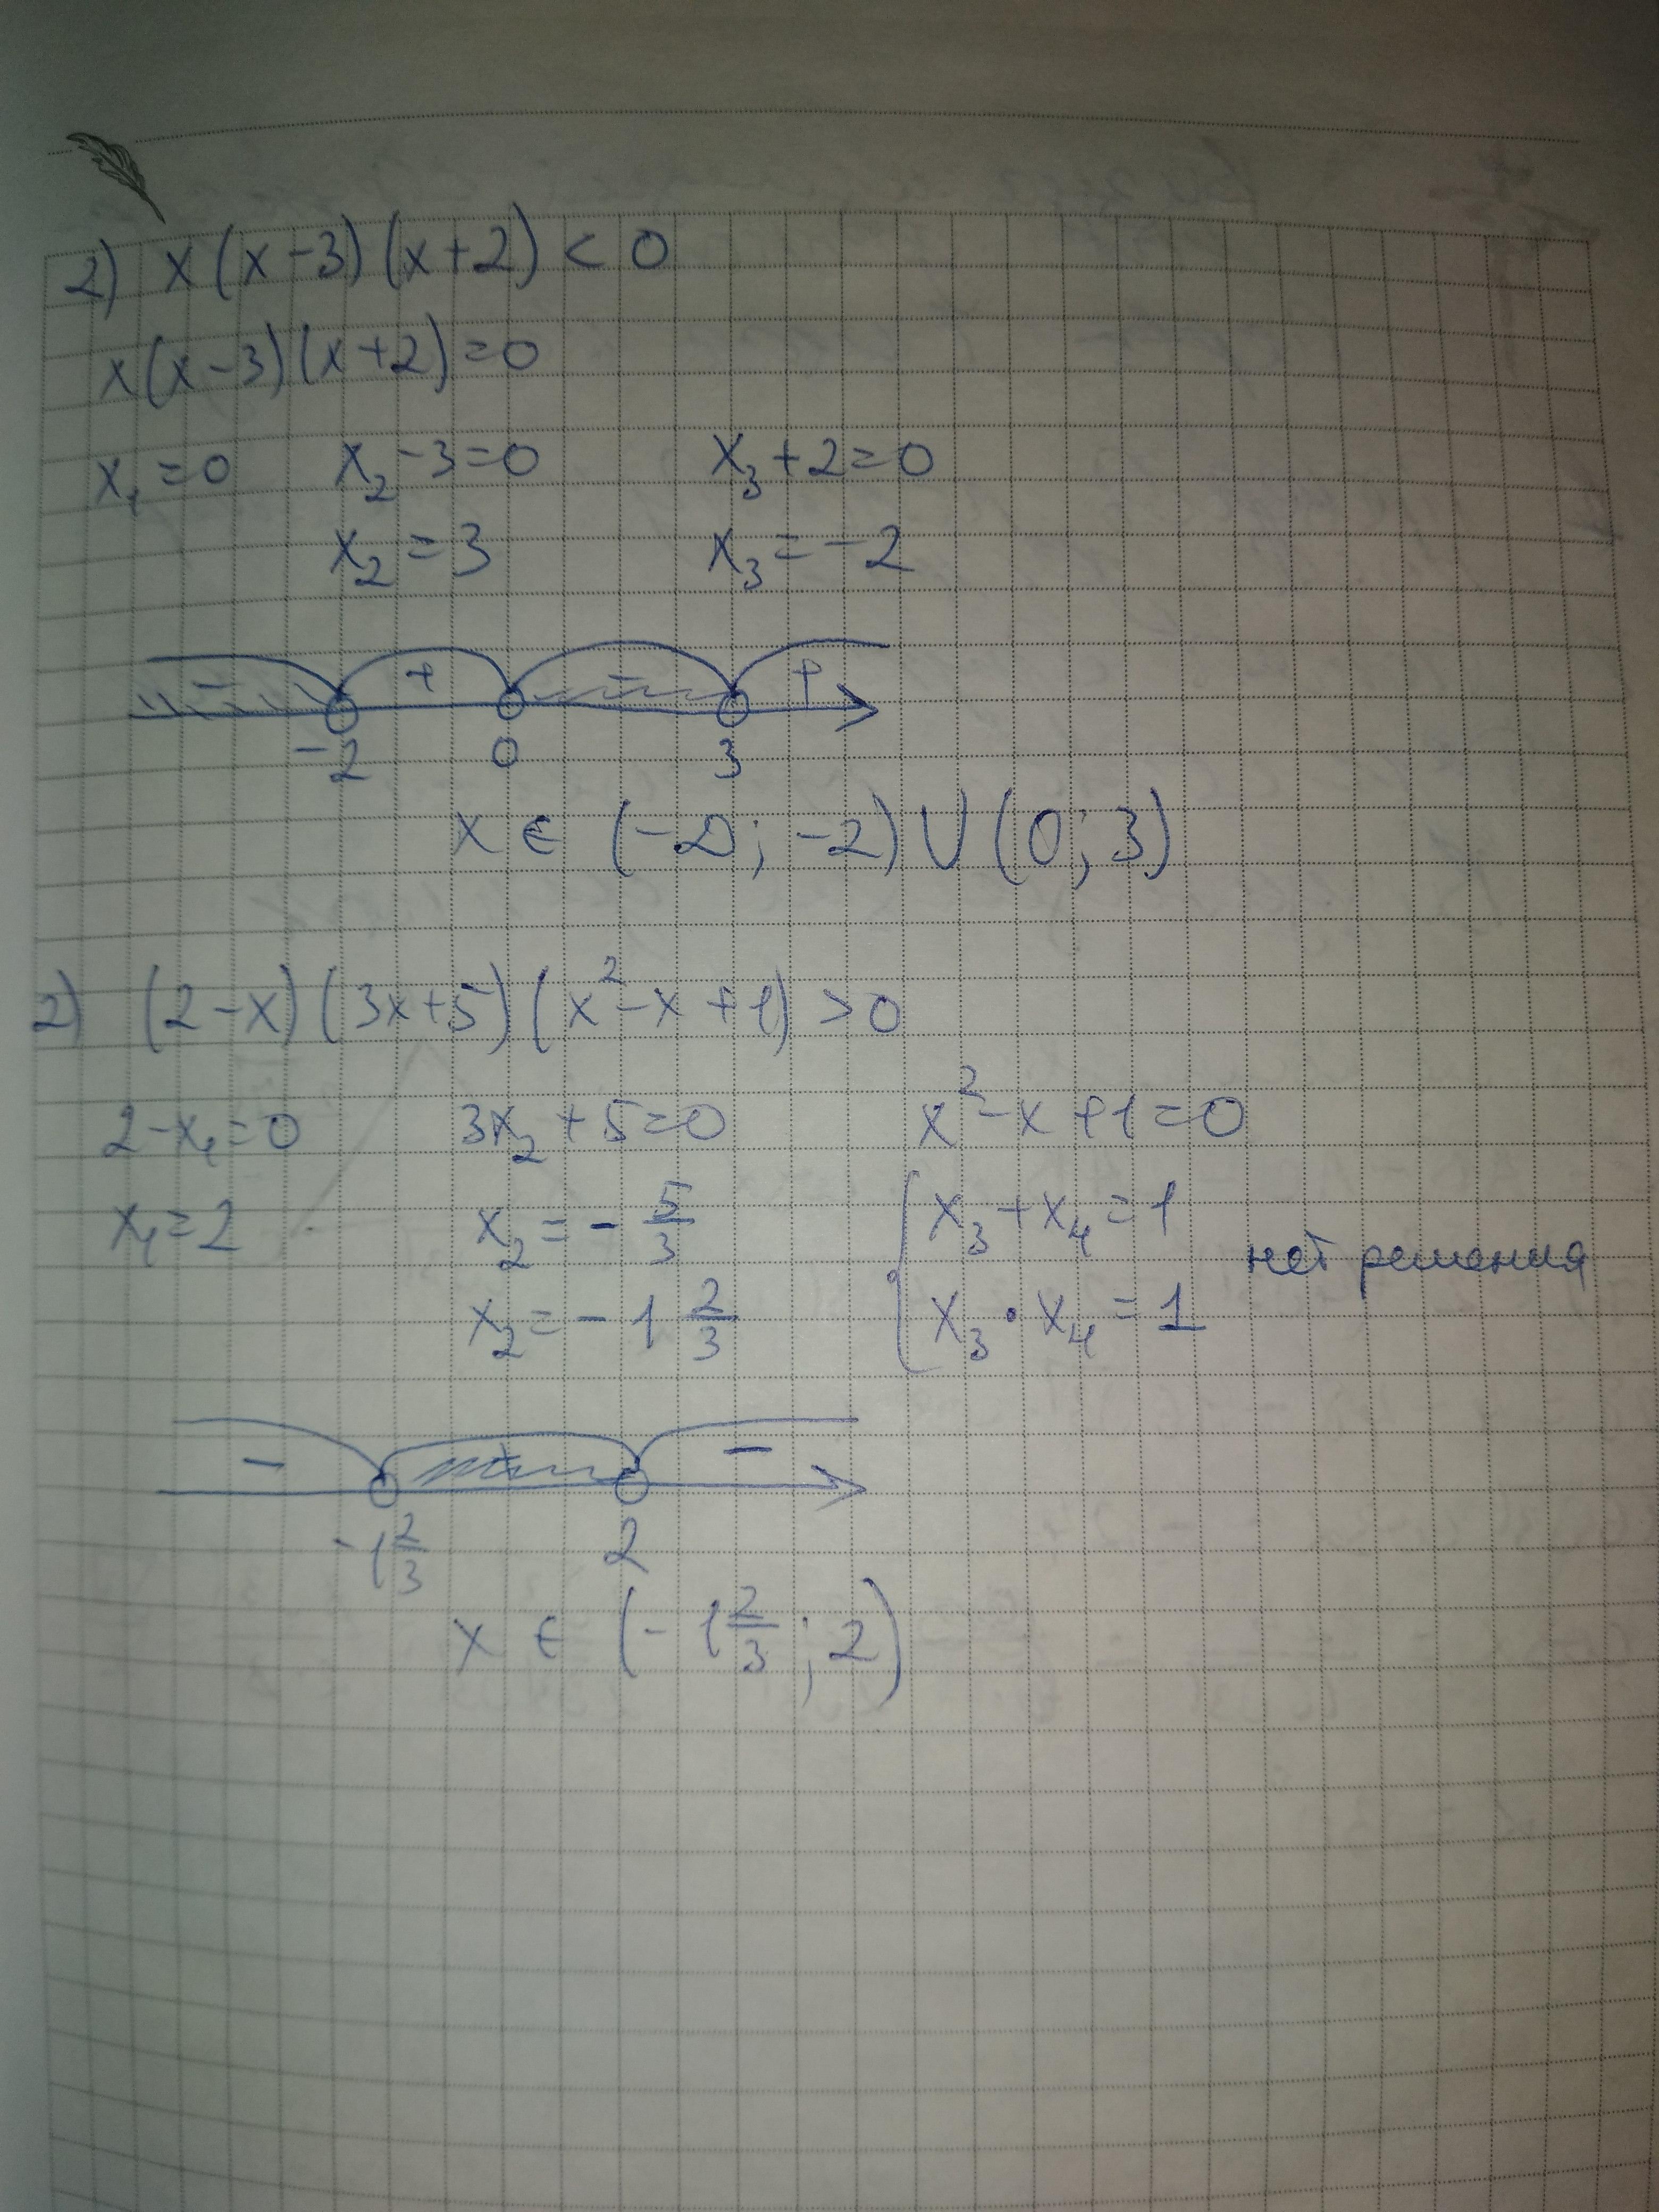 2) x(x-3)(x+2) < 0
x(x-3)(x+2)=0
x₁=0 x₂-3=0 x₃+2=0
x₂=3 x₃=-2
- + - +
-2 0 3
x ∈ (-∞; -2) ∪ (0; 3)
2) (2-x)(3x+5)(x²-x+1) >0
2-x₁=0 3x₂+5=0 x²-x+1=0
x₁=2 x₂=-5/3 { x₃+x₄=1
нет решения
x₂=-1 2/3 x₃·x₄=1
- + -
-1 2/3 2
x ∈ (-1 2/3; 2)